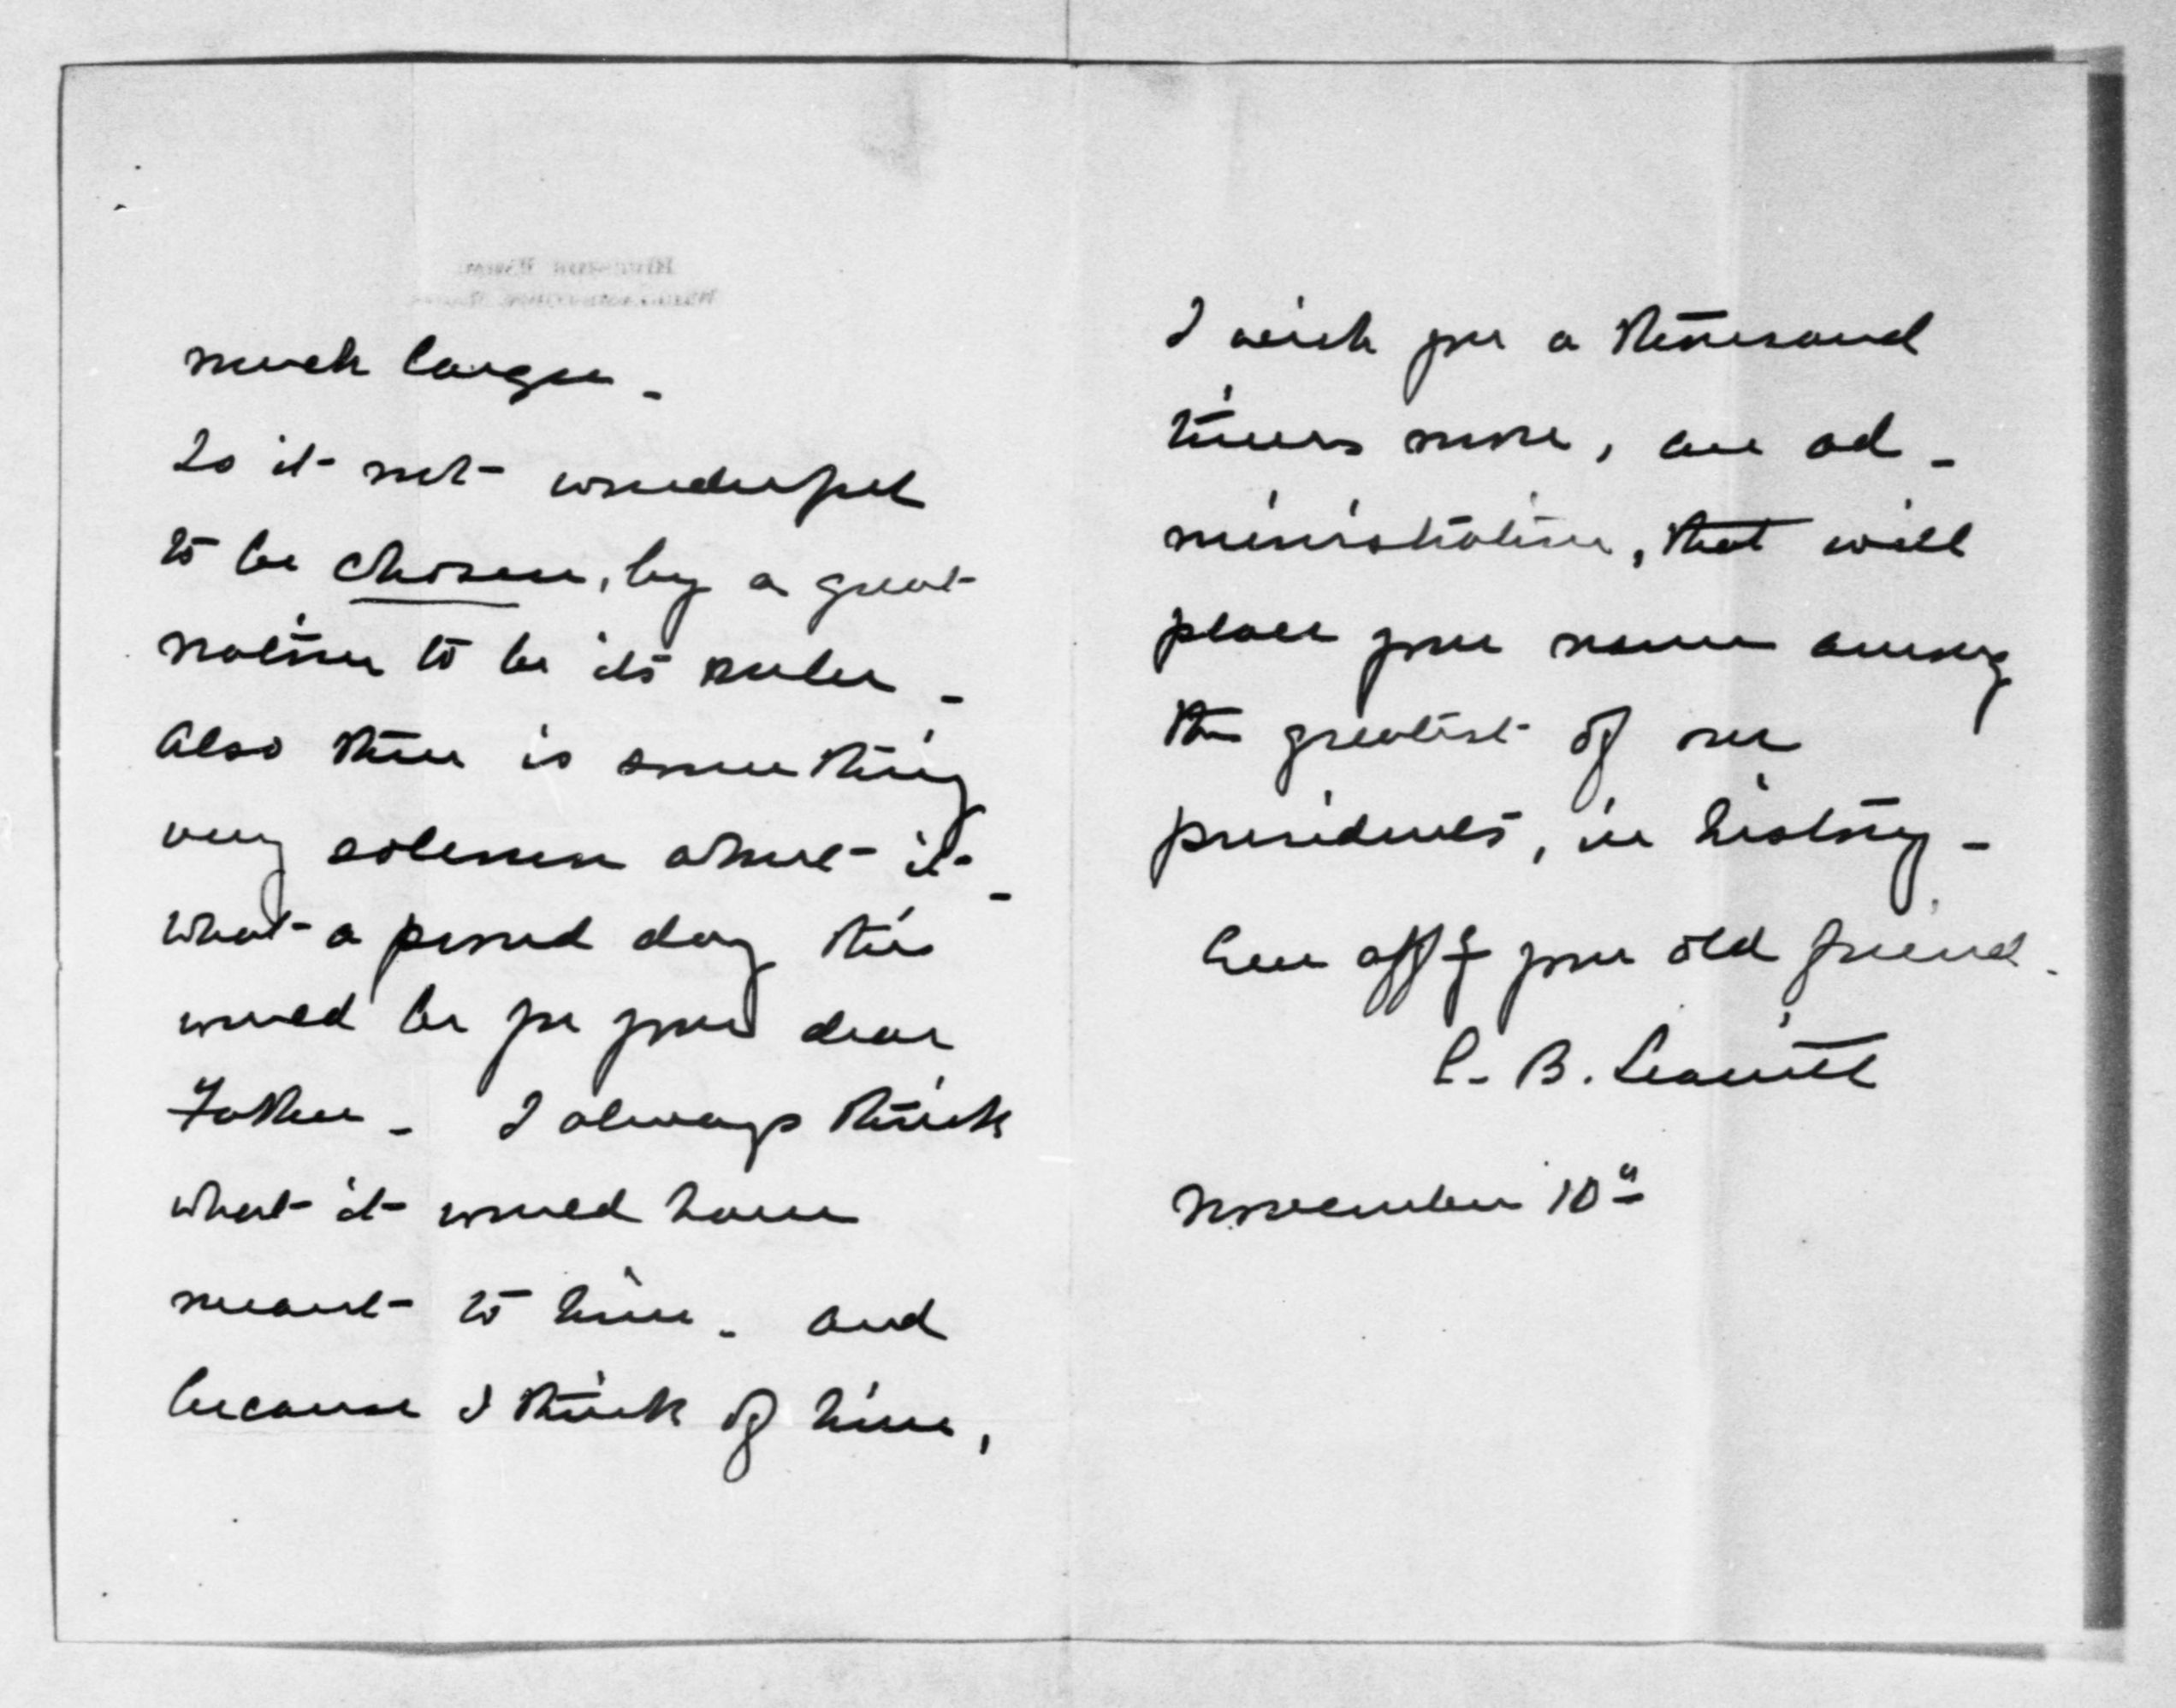 much larger -
Is it not wonderful
to be chosen, by a great
nation to be its ruler -
Also there is something
very solemn about it -
What a proud day this
would be for your dear
Father - I always think
what it would have
meant to him - and
because I think of him,
I wish you a thousand
times more, an ad -
ministration, that will
place your name among
the greatest of our
presidents, in history -
Ever aff y your old friend.
C. B. Leavitt
November 10"